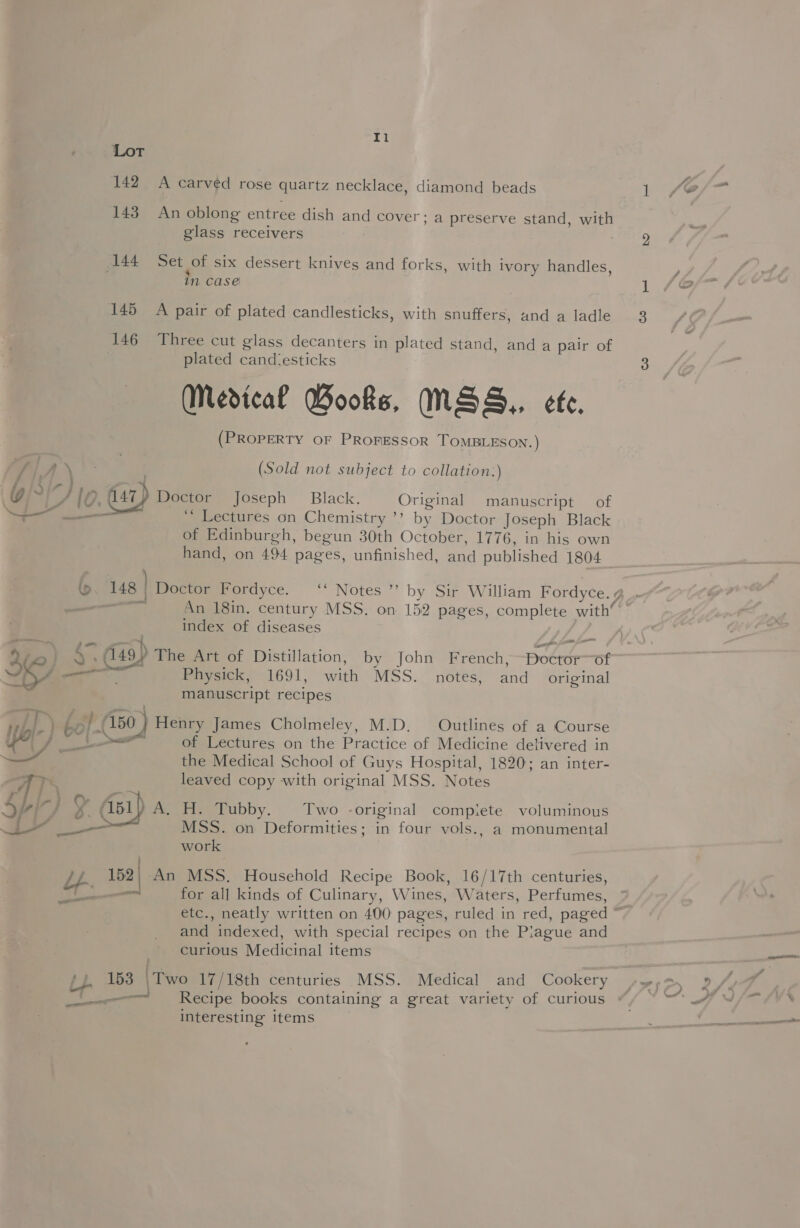 11
Lot
142 A carved rose quartz necklace, diamond beads 1
143 An oblong entree dish and cover; a preserve stand, with
glass receivers 2
144 Set of six dessert knives and forks, with ivory handles,
in case 1
145 A pair of plated candlesticks, with snuffers, and a ladle 3
146 Three cut glass decanters in plated stand, and a pair of
plated candlesticks 3
Medical Books, MSS., etc.
(Property of Professor Tombleson.)
(Sold not subject to collation.)
147 Doctor Joseph Black. Original manuscript of
“Lectures on Chemistry” by Doctor Joseph Black
of Edinburgh, begun 30th October, 1776, in his own
hand, on 494 pages, unfinished, and published 1804
148 Doctor Fordyce. “Notes” by Sir William Fordyce.
An 18in. century MSS. on 152 pages, complete with
index of diseases
149 The Art of Distillation, by John French, Doctor of
Physick, 1691, with MSS. notes, and original
manuscript recipes
150 Henry James Cholmeley, M.D. Outlines of a Course
of Lectures on the Practice of Medicine delivered in
the Medical School of Guys Hospital, 1820; an inter-
leaved copy with original MSS. Notes
151 A. H. Tubby. Two original complete voluminous
MSS. on Deformities; in four vols., a monumental
work
152 An MSS. Household Recipe Book, 16/17th centuries,
for all kinds of Culinary, Wines, Waters, Perfumes,
etc., neatly written on 400 pages, ruled in red, paged
and indexed, with special recipes on the Plague and
curious Medicinal items
153 Two 17/18th centuries MSS. Medical and Cookery
Recipe books containing a great variety of curious
interesting items